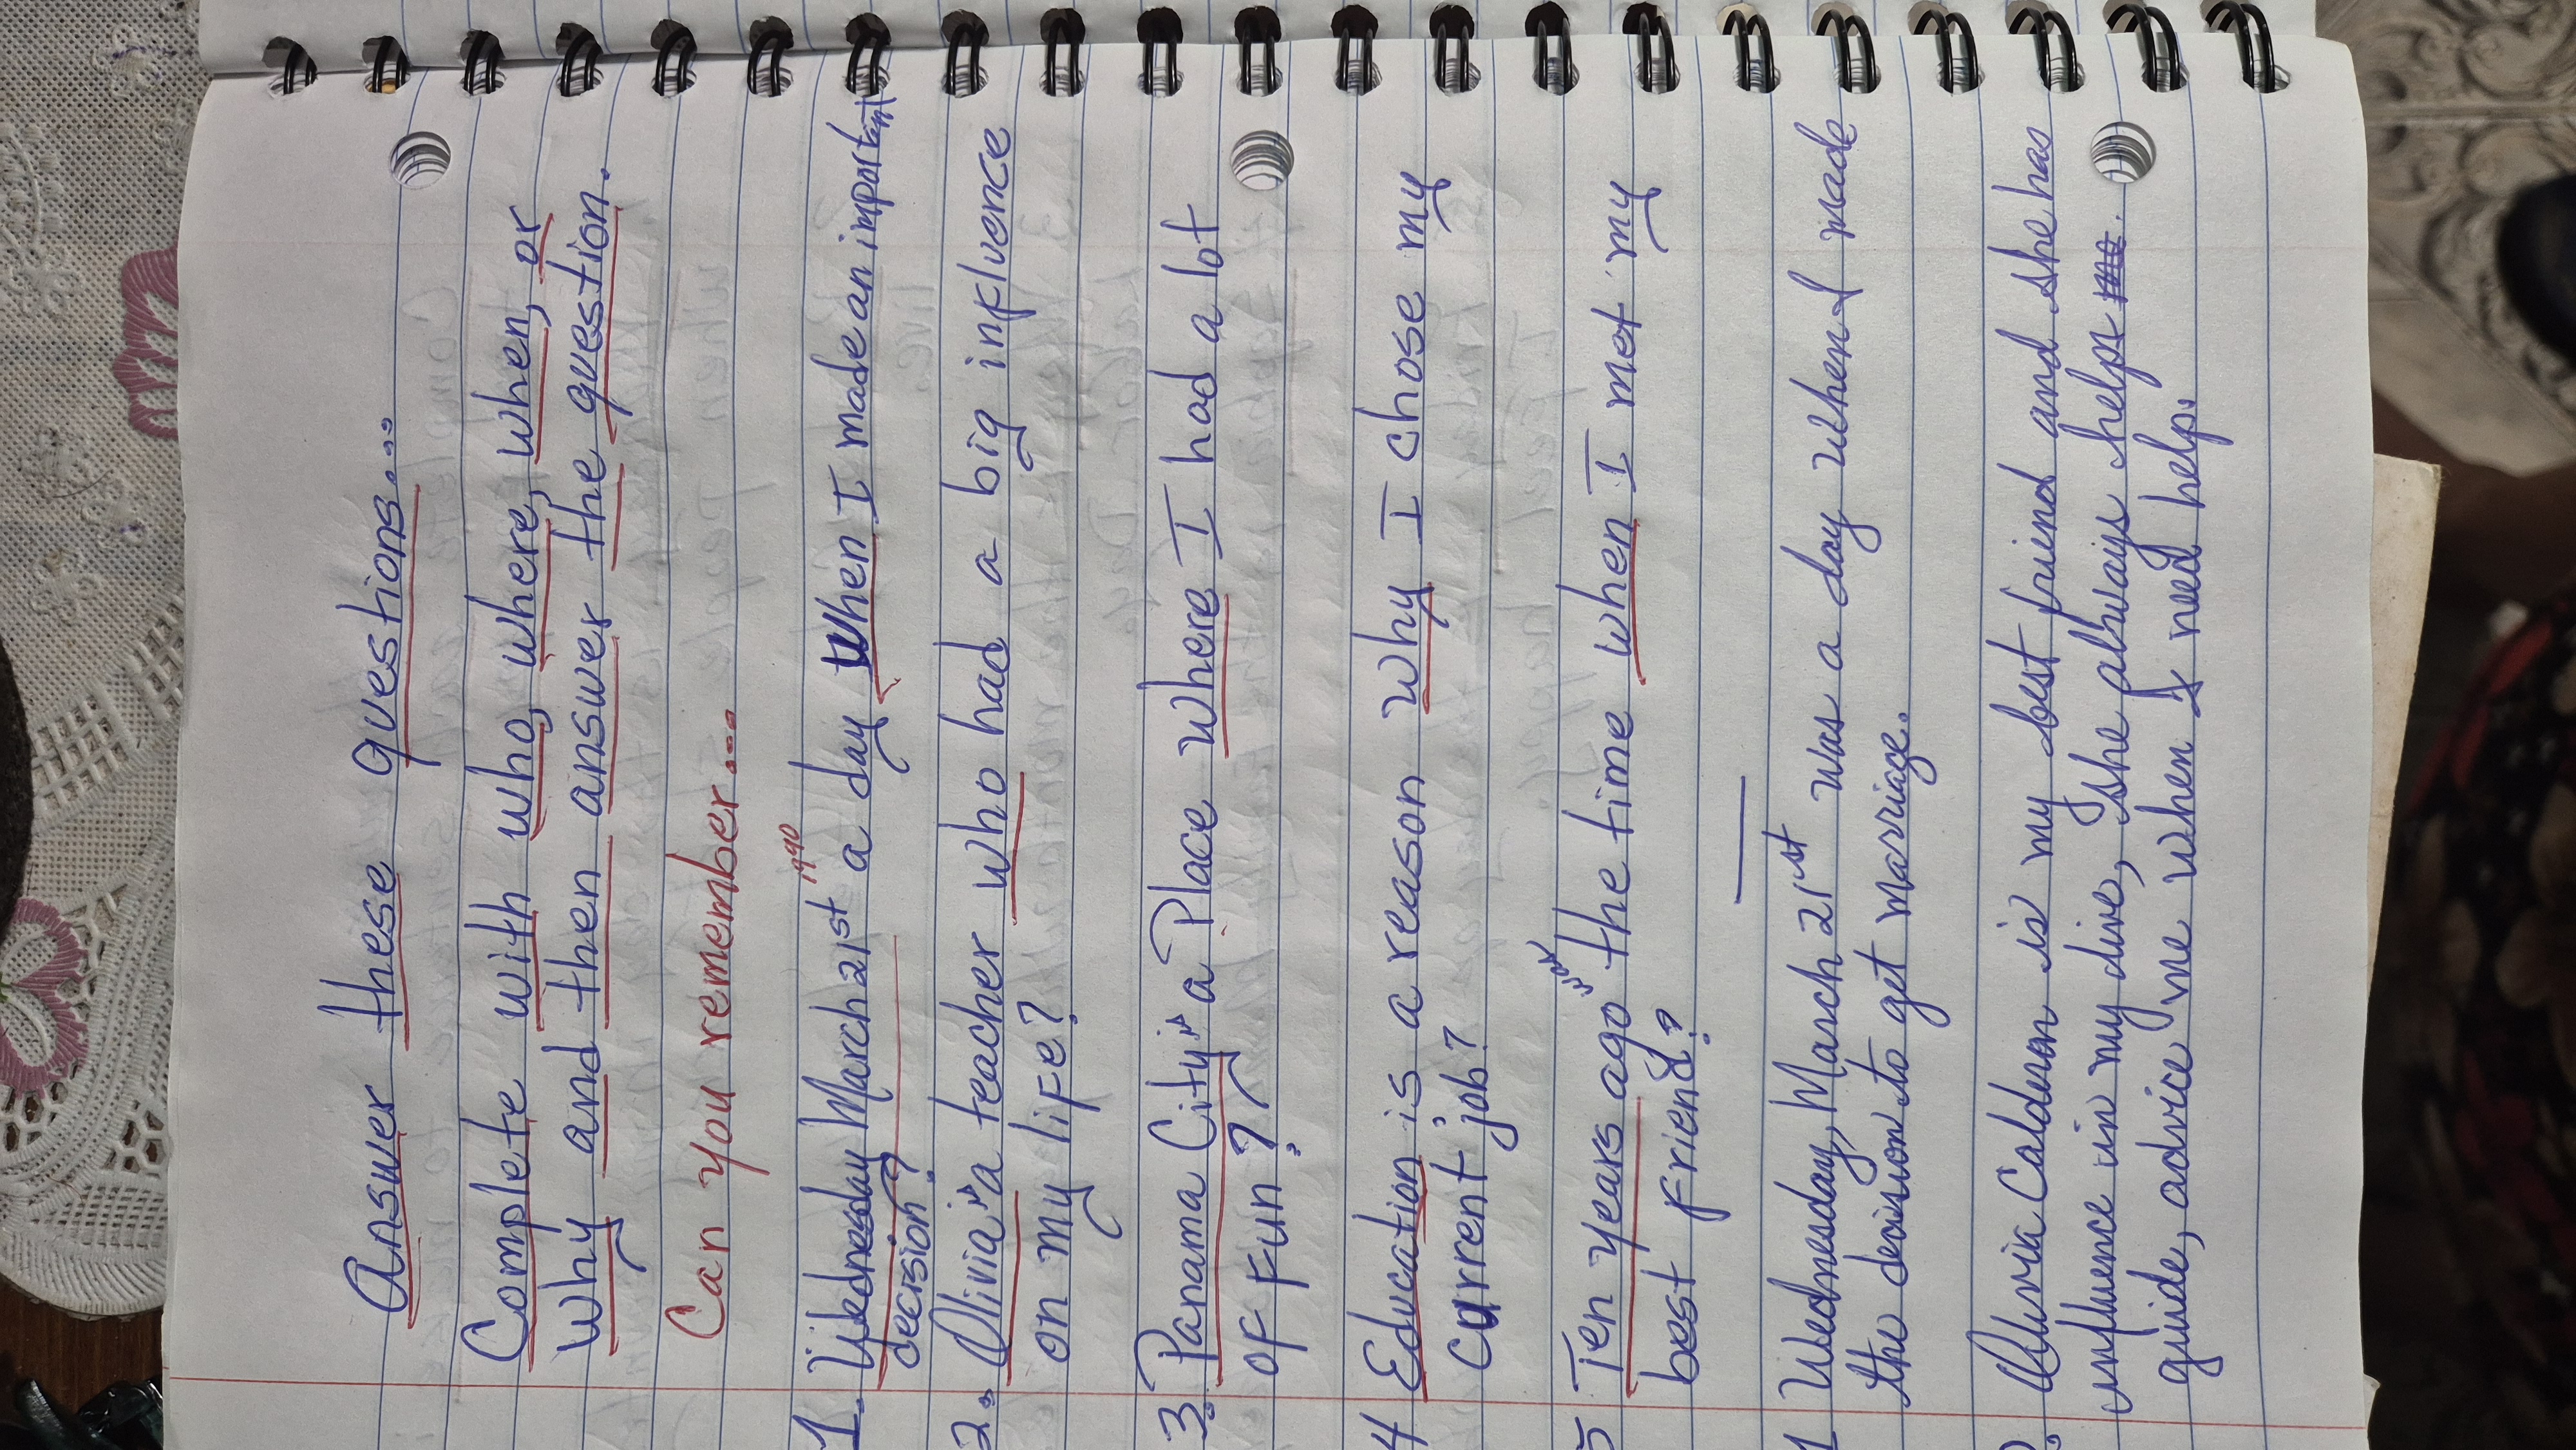 Answer these questions....
Complete with who, where, when, or
why and then answer the question.
Can you remember...
1990
1. Wednesday March 21st a day when I made an important
decision?
2. Olivia is a teacher who had a big influence
on my life?
3. Panama City is a Place where I had a lot
of fun?
4 Education is a reason why I chose my
current job?
was
5 Ten years ago the time when I met my
best friend?
1 Wednesday, March 21st was a day when I made
the decision to get marriage.
2. Oliva Calderon is my best friend and she has
influence in my live, she always help
guide, advice me when I need help.